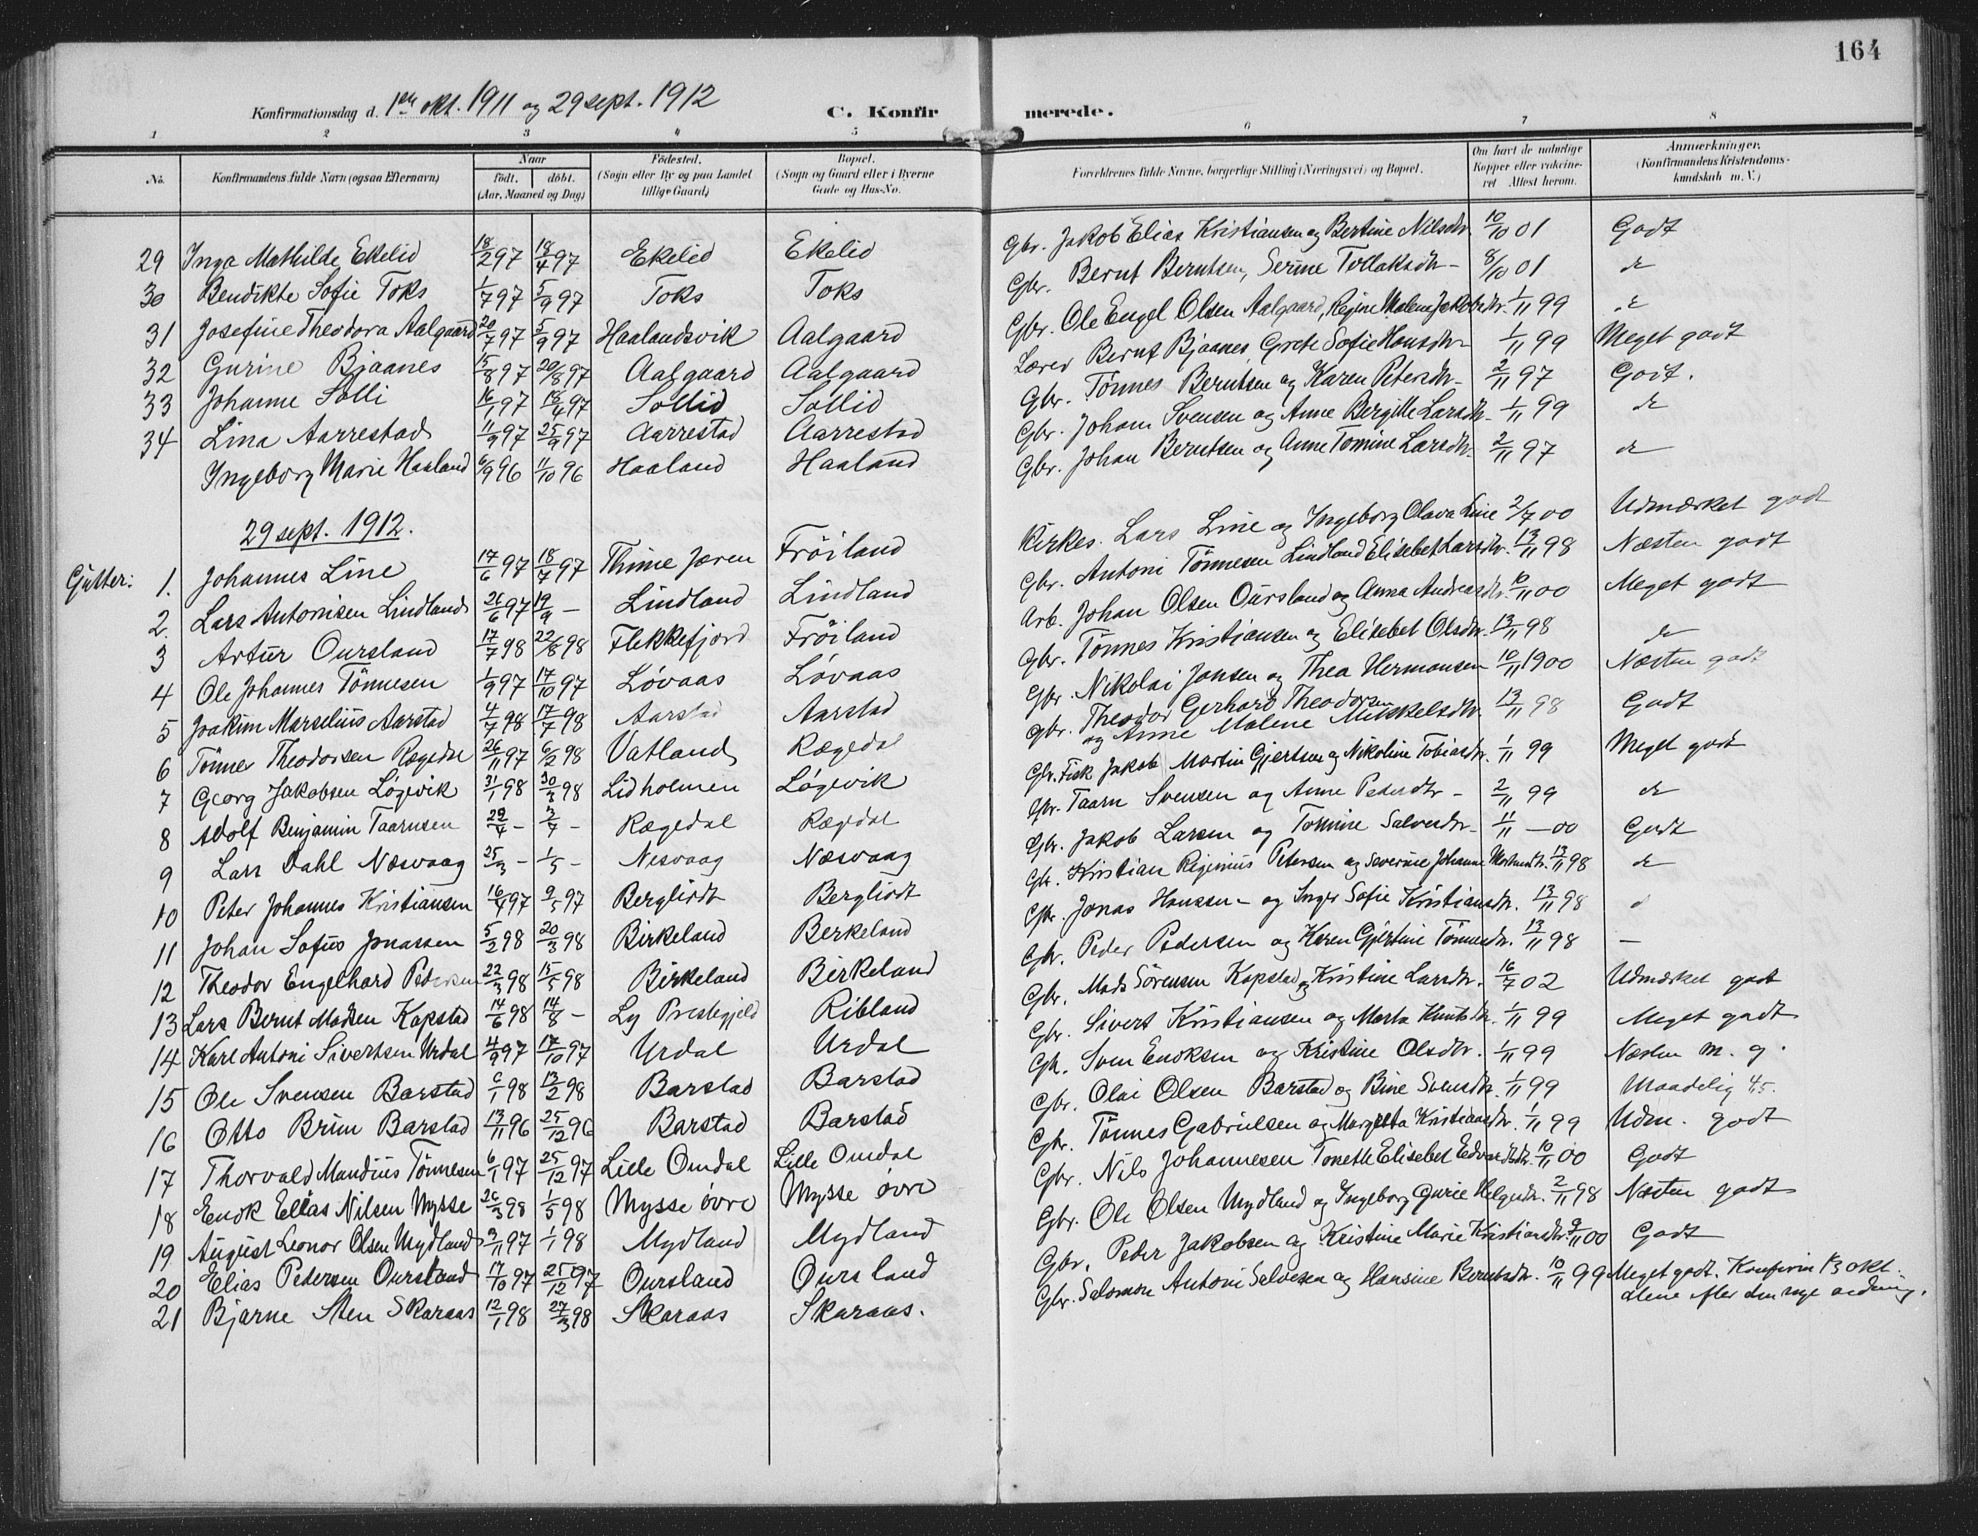 164
Konfirmationsdag d. 1ste okt. 1911 og 29 sept. 1912 C. Konfir merede.
1 2 3 4 5 6 7 8
No. Konfirmandens fulde Navn (ogsaa Efternavn) Naar født. døbt. (Aar, Maaned og Dag) Fødested. (Sogn eller By og paa Landet tillige Gaard) Bopæl. (Sogn og Gaard eller i Byerne Gade og Hus-No. Forældrenes fulde Navne, borgerlige Stilling (Næringsvei) og Bopæl. Om havt de naturlige Kopper eller vakcineret Attest herom. Anmærkninger. (Konfirmandens Kristendomskundskab m. V.)
29 Inga Mathilde Ekelid 18/2 97 18/4 97 Ekelid Ekelid Gbr. Jakob Elias Kristiansen og Bertine Nilsdtr. 10/10 01 Godt
30 Bendikte Sofie Toks 1/7 97 5/9 97 Toks Toks Gbr. Bernt Berntsen, Serine Tollaksdtr 8/10 01 do
31 Josefine Theodora Aalgaard 20/7 97 5/9 97 Haalandsvik Aalgaard Gbr. Ole Engel Olsen Aalgaard, Regine Malene Jakobsdtr. 1/11 99 do
32 Gurine Bjaanes 15/8 97 20/8 97 Aalgaard Aalgaard Lærer Bernt Bjaanes, Grete Sofie Hansdtr 1/11 99 Meget godt
33 Johanne Solli 16/1 97 18/4 97 Sollid Sollid Gbr. Tønnes Berntsen og Karen Petersdtr 2/11 97 Godt.
34 Lina Aarrestad 11/9 97 25/9 97 Aarrestad Aarrestad Gbr. Johan Svensen og Anne Bergitte Larsdtr. 1/11 99 do
Ingeborg Marie Haaland 6/9 96 11/10 96 Haaland Haaland Gbr. Johan Berntsen og Anne Tomine Larsdtr. 2/11 97 do
29 sept. 1912.
Gutter: 1. Johannes Line 17/6 97 18/7 97 Thime Jæren Frøiland Kirkes. Lars Line og Ingeborg Olava Line 2/7 00 Udmærket godt
2. Lars Antonisen Lindland 26/6 97 19/9 – Lindland Lindland Gbr. Antoni Tønnesen Lindland Elisebet Larsdtr. 13/11 98 Næsten godt
3 Artur Oursland 17/7 98 22/8 98 Flekkefjord Frøiland Arb. Johan Olsen Oursland og Anna Andreasdtr. 10/11 00 Meget godt
4 Ole Johannes Tønnesen 1/9 97 17/10 97 Løvaas Løvaas Gbr. Tønnes Kristiansen og Elisebet Olsdtr. 13/11 98 do
5 Joakim Marselius Aarstad 4/7 98 17/7 98 Aarstad Aarstad Gbr. Nikolai Jansen og Thea Hermansen 10/11 1900 Næsten godt
6 Tønnes Theodorsen Rægedal 26/11 97 6/2 98 Vatland Rægedal gbr. Theodor Gerhard Theodorsen og Anne Malene Mikkelsdtr. 13/11 98 Godt
7 Georg Jakobsen Løgevik 31/1 98 30/3 98 Lidholmen Løgevik Gbr. Fisk Jakob Martin Gjertsen og Nikoline Tobiasdtr. 1/11 99 Meget godt
8 Adolf Benjamin Taarnsen 22/4 – 3/7 – Rægedal Rægedal Gbr. Taarn Svensen og Anne Pedersdtr – 2/11 99 do
9 Lars Dahl Næsvaag 25/3 – 1/5 – Nesvaag Næsvaag Gbr. Jakob Larsen og Tomine Salvesdtr – 11/11 – 00 Godt
10 Peter Johannes Kristiansen 16/4 97 9/5 97 Berglidt Berglidt Gbr. Kristian Reginius Petersen og Severine Johanne 13/11 98 do
11 Johan Sofus Jonassen 5/2 98 20/3 98 Birkeland Berkeland Gbr. Jonas Hanssen – og Inger Sofie Kristiansdtr. 13/11 98 d
12 Theodor Engelhard Pedersen 22/3 98 15/5 98 Birkeland Birkeland Gbr. Peder Pedersen og Karen Gjertine Tønnesdtr. 13/11 98 –
13 Lars Bernt Madsen Kapstad 14/6 98 14/8 – Ly Prestegjeld Ribland Gbr. Mads Sørensen Kapstad og Kristine Larsdtr. 16/7 02 Udmærket godt
14 Karl Antoni Sivertsen Urdal 4/9 97 17/10 97 Urdal Urdal Gbr. Sivert Kristiansen og Marta Knutsdtr. 1/11 99 Meget godt
15 Ole Svensen Barstad 6/1 98 13/2 98 Barstad Barstad Gbr. Sven Enoksen og Kristine Olsdtr. 1/11 99 Næsten m. g.
16 Otto Brim Barstad 13/11 96 25/12 96 Barstad Barstad Gbr. Olai Olsen Barstad og Bine Svensdtr. 1/11 99 Maadelig 4,5.
17 Thorvald Mandius Tønnesen 6/1 97 25/12 97 Lille Omdal Lille Omdal Gbr. Tønnes Gabrielsen og Margreta Kristiansdtr. 1/11 99 Udm. godt
18 Enok Elias Nilsen Mysse 26/3 98 1/5 98 Mysse øvre Mysse øvre Gbr. Nils Johannesen Tonette Elisebet Edvardsdtr. 10/11 00 Godt
19 August Leonor Olsen Mydland 9/11 97 1/1 98 Mydland Mydland Gbr. Ole Olsen Mydland og Ingeborg Gurie Helgesdtr. 2/11 98 Næsten godt
20 Elias Pedersen Oursland 17/10 97 25/12 97 Oursland Oursland Gbr. Peder Jakobsen og Kristine Marie Kristiansdtr. 9/11 00 Godt
21 Bjarne Sten Skaraas 12/1 98 27/3 98 Skaraas Skaraas. Gbr. Salomon Antoni Salvesen og Hansine Berntsdtr. 10/11 99 Meget godt. Konfirm 13 okt. alene efter den nye ordning.